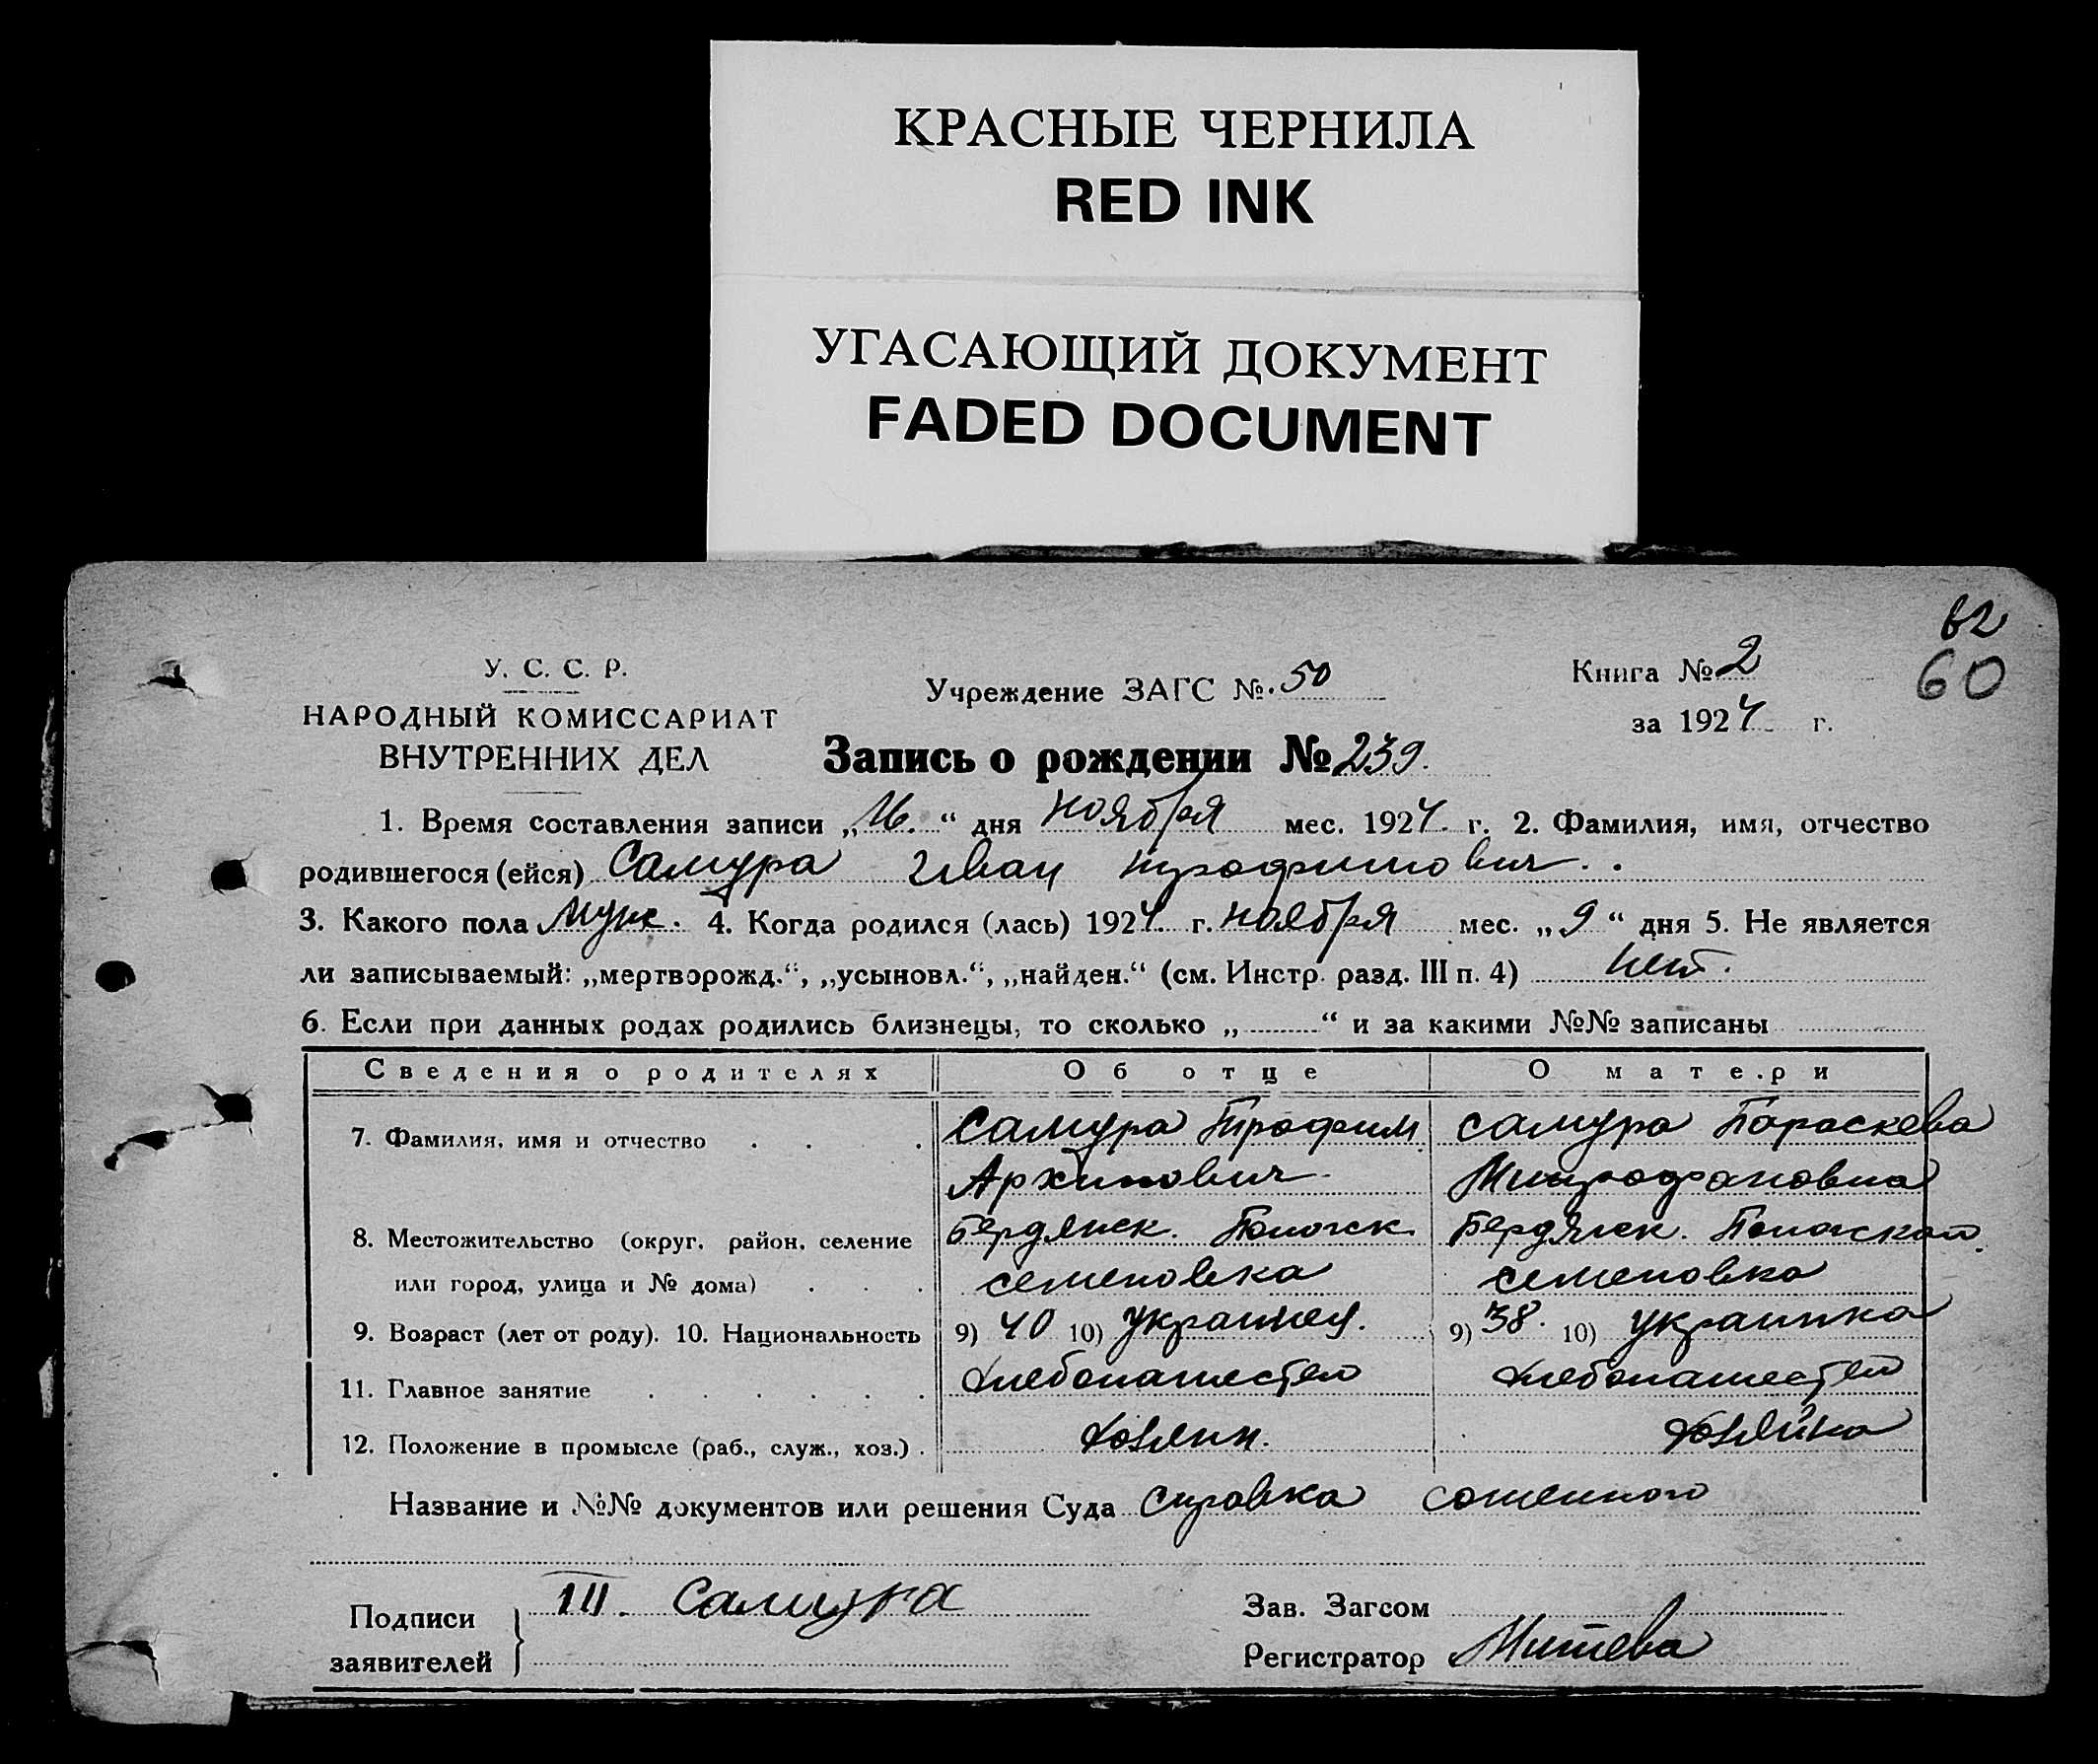 КРАСНЫЕ ЧЕРНИЛА
RED INK
УГАСАЮЩИЙ ДОКУМЕНТ
FADED DOCUMENT
62
60
У. С. С. Р.
НАРОДНЫЙ КОМИССАРИАТ
ВНУТРЕННИХ ДЕЛ
Учреждение ЗАГС №. 50
Книга № 2
за 1924 г.
Запись о рождении № 239.
1. Время составления записи „16.“ дня ноября мес. 1924. г. 2. Фамилия, имя, отчество
родившегося (ейся) Самура Иван Трофимович.
3. Какого пола Муж. 4. Когда родился (лась) 1924. г. ноября мес. „9“ дня 5. Не является
ли записываемый: „мертворожд.“, „усыновл.“, „найден.“ (см. Инстр. разд. III п. 4) нет.
6. Если при данных родах родились близнецы, то сколько „ “ и за какими №№ записаны
Сведения о родителях Об отце О матери
7. Фамилия, имя и отчество Самура Трофим Самура Параскева
Архипович Митрофановна
8. Местожительство (округ, район, селение Бердянск. Пологск. Бердянск. Пологском.
или город, улица и № дома) Семеновка Семеновка
9. Возраст (лет от роду). 10. Национальность 9) 40 10) Украинец. 9) 38. 10) Украинка
11. Главное занятие Хлебопашеством Хлебопашеством
12. Положение в промысле (раб., служ., хоз.) Хозяин. Хозяйка
Название и №№ документов или решения Суда Справка
Подписи
заявителей
Самура
Зав. Загсом
Регистратор